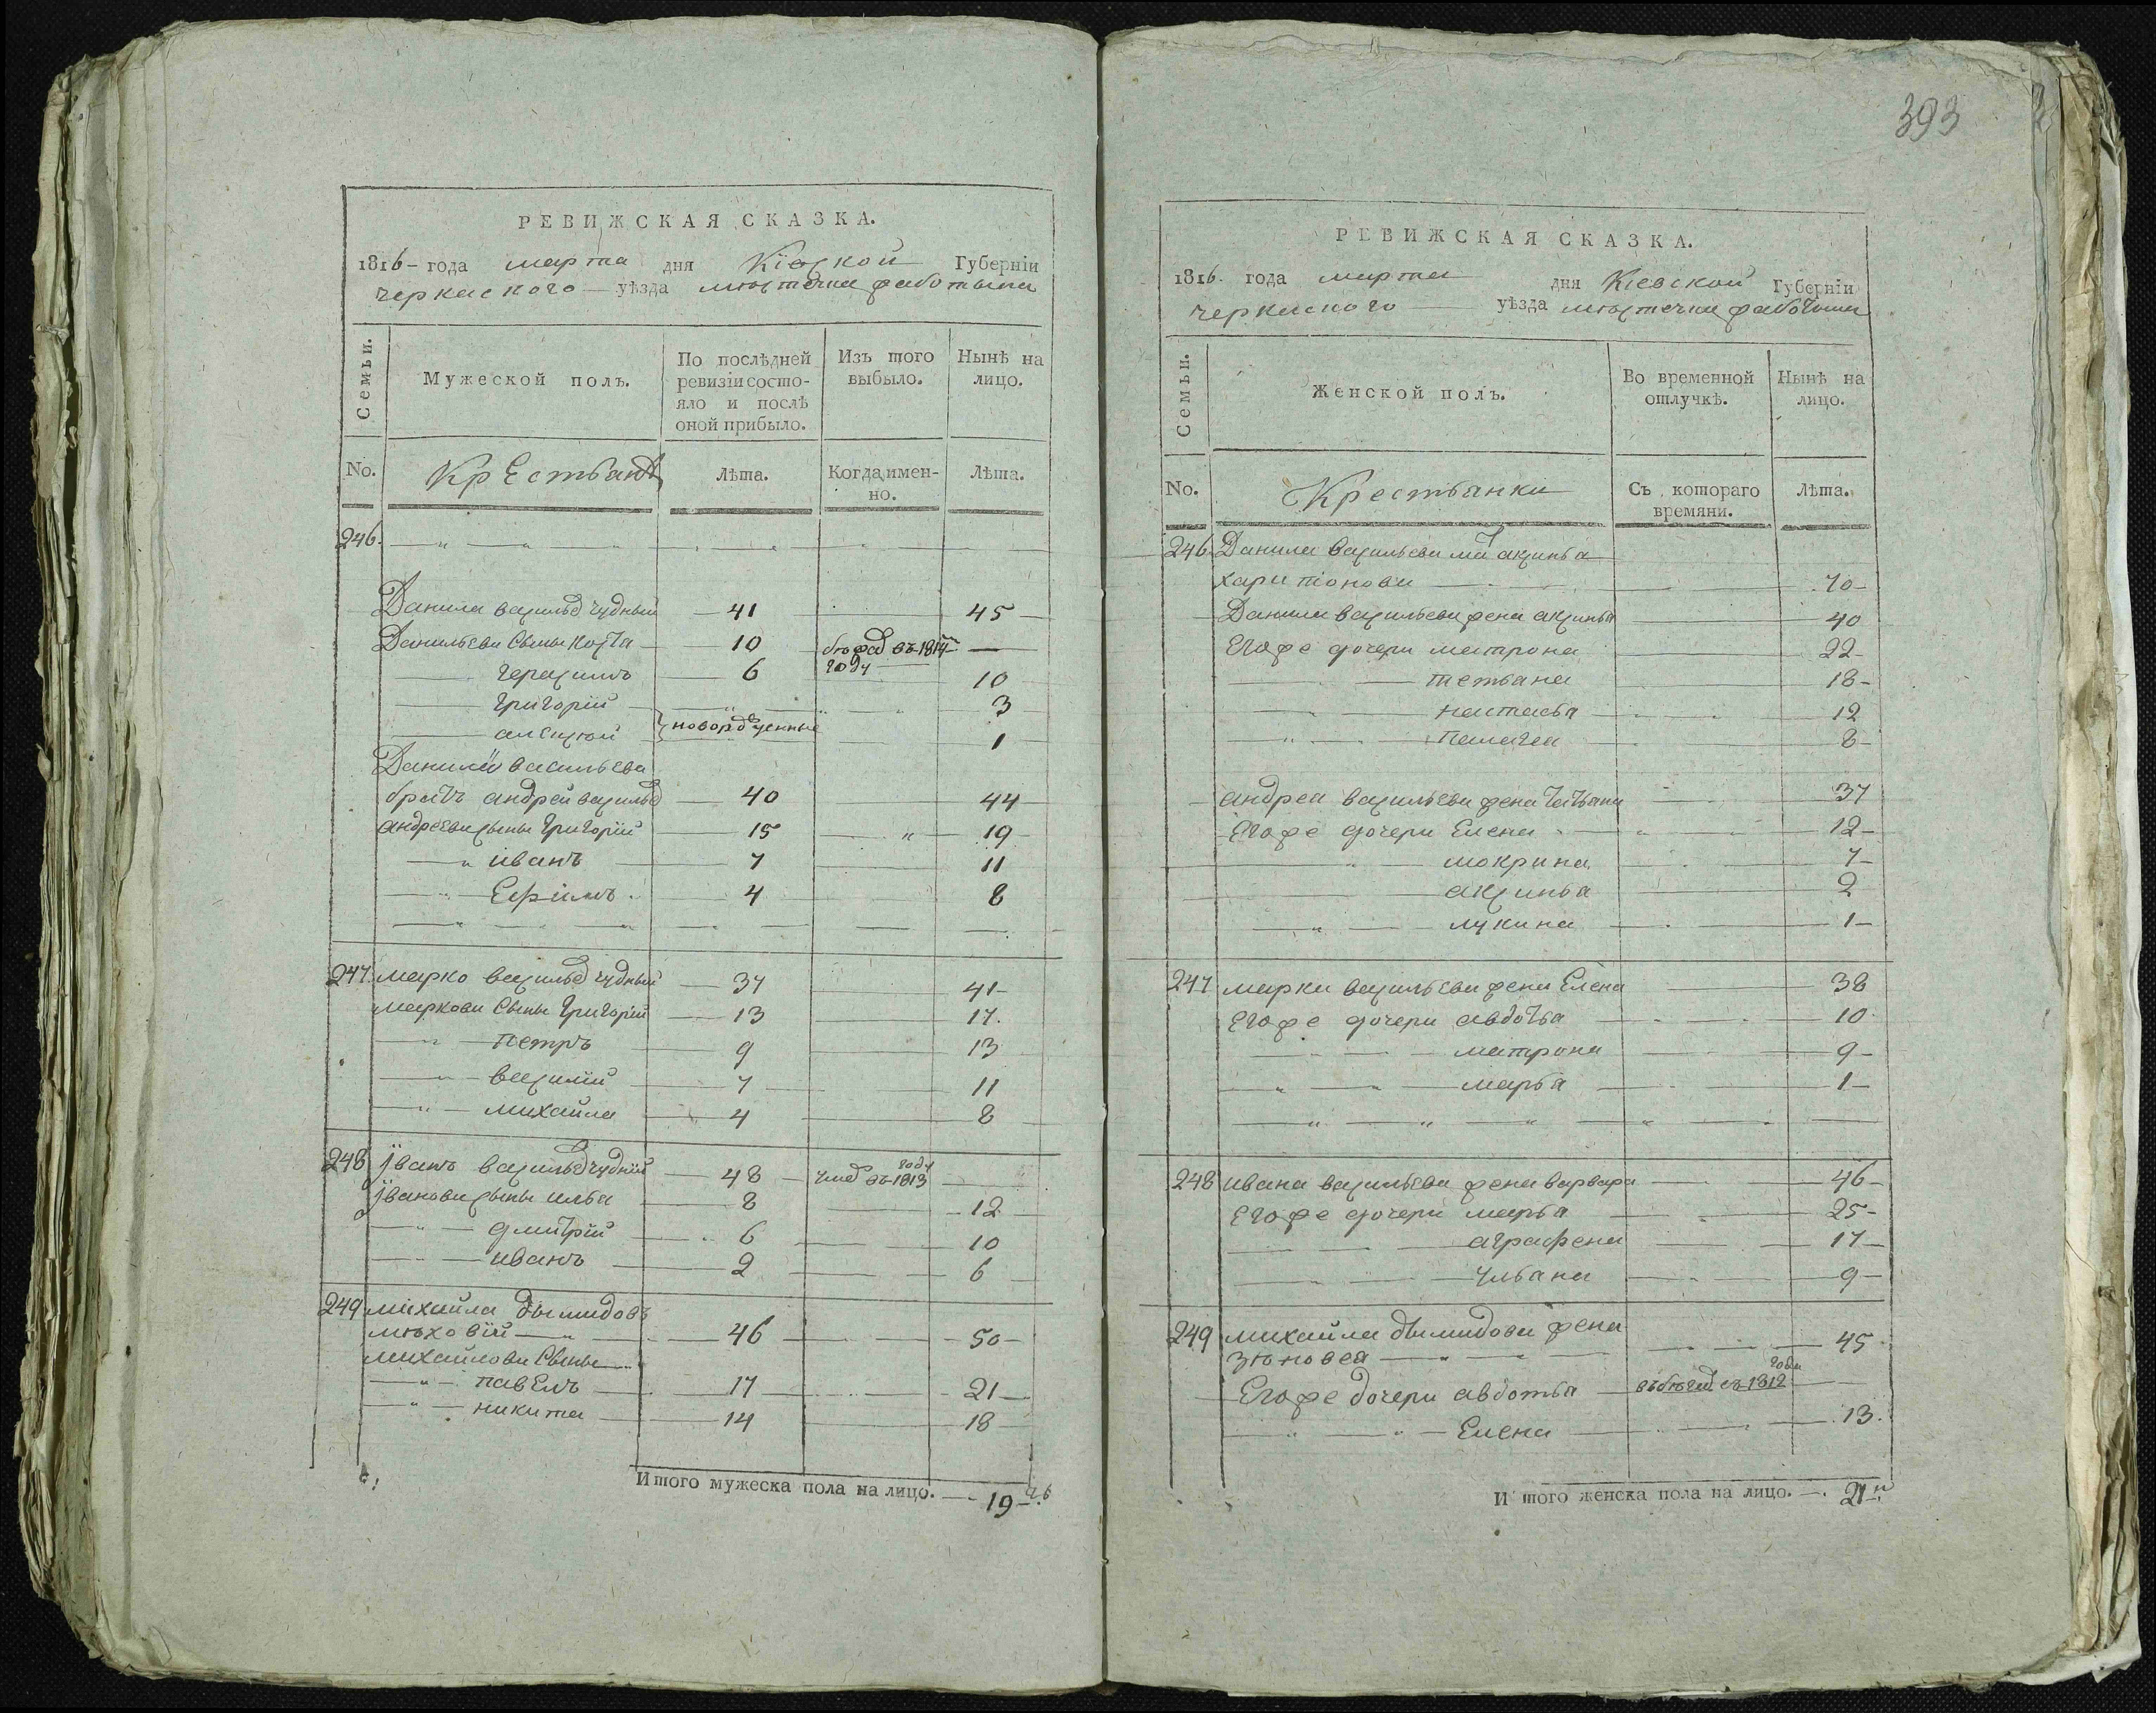 393
РЕВИЖСКАЯ СКАЗКА.
1816 - года марта дня Кіевской Губерніи
черкаского уѣзда мѣстечка
Семьи.
Мужеской полъ.
По послѣдней ревизіи состо-
яло и послѣ
оной прибыло.
Изъ того
выбыло.
Нынѣ на
лицо.
No. Крестьанѣ Лѣта. Когда имен-
но. Лѣта.
246.
Данила васильев чудный 41 45
Данильеви Сыны Коста 10 бѣжал въ 1814м
герасимъ 6 году 10
григорій 3
алексѣй новорожденные 1
Данила васильева
братъ андрей васильев 40 44
андрееви сыны григорій 15 19
иванъ 7 11
Ефимъ 4 8
247. марко васильев чудный 37 41
маркови Сыны григорій 13 17.
петръ 9 13
василій 7 11
михайла 4 8
248 іванъ васильев чудный 48 умер въ 1813 году
івановы сыны илья 8 12
дмитрій 6 10
иванъ 2 6
249 михайла дымидовъ
мѣховій 46 50
михайлови Сыны
павелъ 17 21
никита 14 18
Итого мужеска пола на лицо. 19
РЕВИЖСКАЯ СКАЗКА.
1816. года марта дня Кіевской Губерніи
черкаского уѣзда мѣстечка
Семьи.
Женской полъ.
Во временной
отлучкѣ.
Нынѣ на
лицо.
No. Крестьянки Съ котораго
времяни. Лѣта.
246 Данила васильева мат аксинья
харитонови 70
Данили васильеви жена аксинья 40
Егоже дочери матрона 22
татьана 18
настасья 12
палагея 8
андрея васильеви жена татьана 37
Егоже дочери Елена 12
мокрина 7
аксинья 2
лукина 1
247 марки васильеви жена Елена 38
Егоже дочери авдотья 10
матрона 9
марья 1
248 ивана васильеви жена варвара 46
Егоже дочери марья 25
аграфена 17
ульана 9
249 михайла дымидови жена
зѣновея 45
Егоже дочери авдотья съ 1812 года
Елена 13.
Итого женска пола на лицо. 21